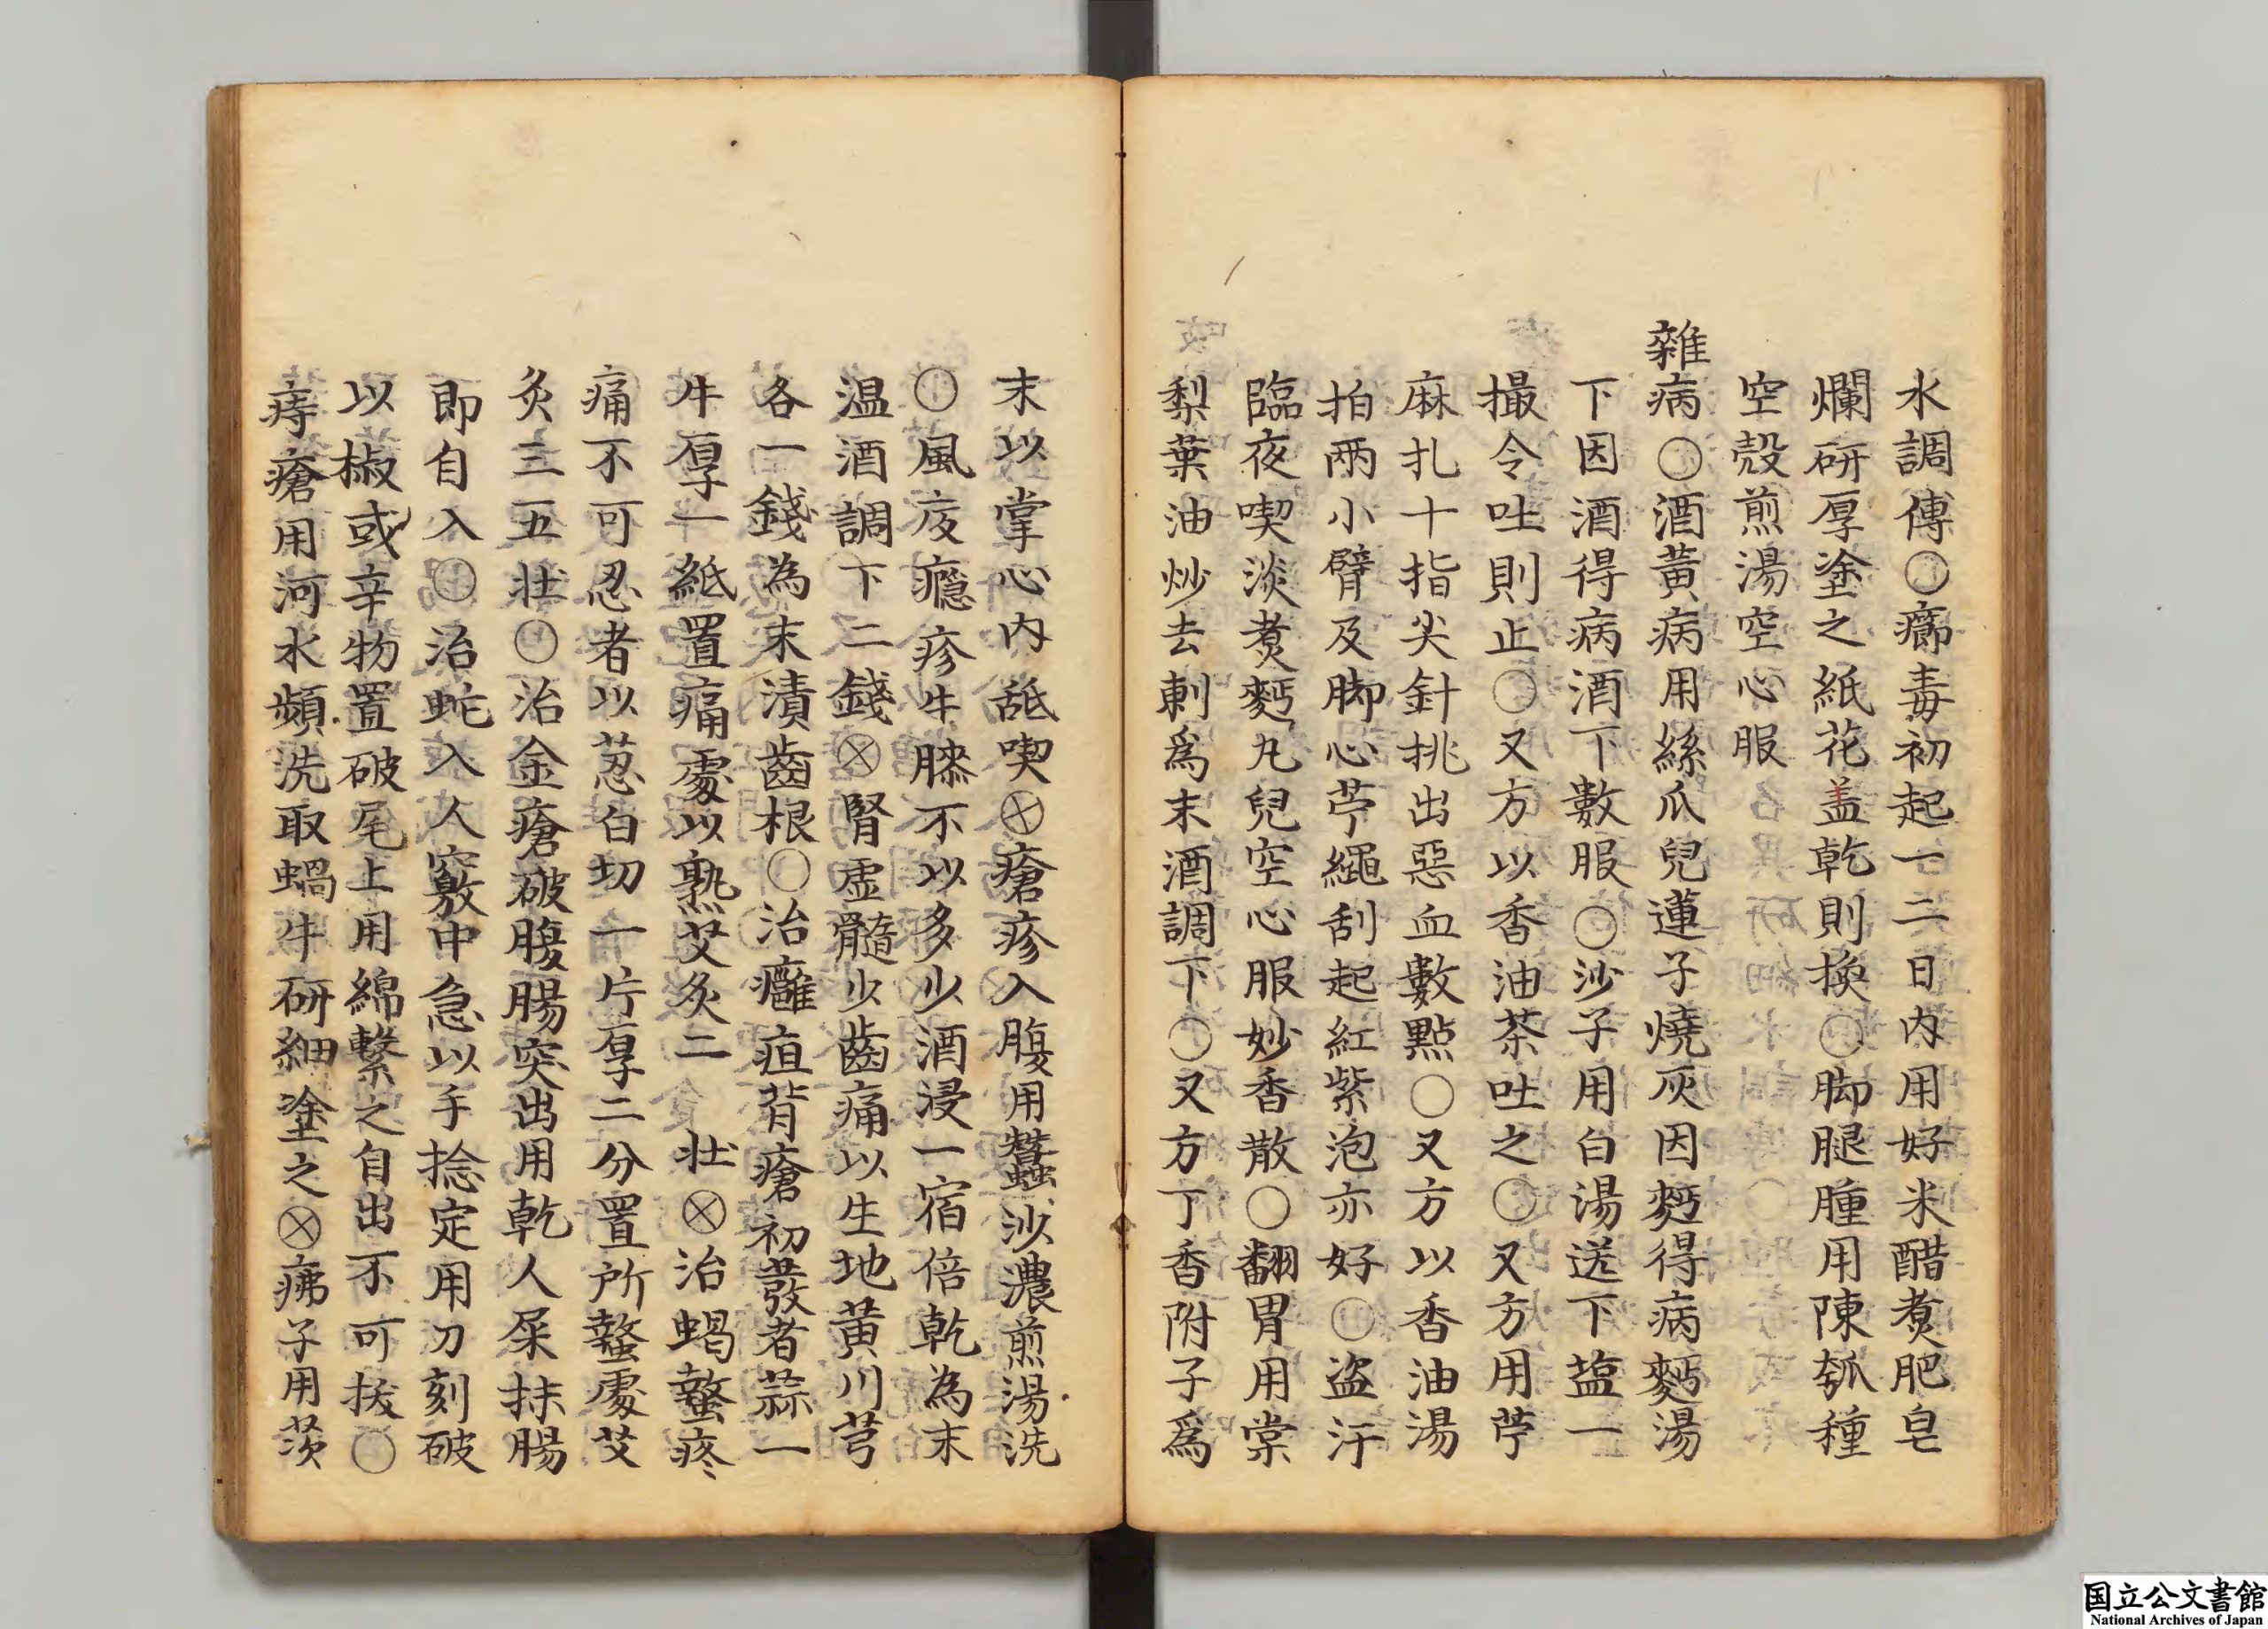 水調傅〇癤毒初起一二日内用好米醋煑肥皂
爛研厚塗之紙花盖乾則換〇脚腿腫用陳瓠種
空殻煎湯空心服
雜病〇酒黃病用絲爪兒蓮子燒灰因麪得病麪湯
下因酒得病酒下數服〇沙子用白湯送下塩一
撮令吐則止〇又方以香油茶吐之〇又方用苧
麻扎十指尖針挑出惡血數點〇又方以香油湯
拍兩小臂及脚心苧繩刮起紅紫泡亦好〇盗汗
臨夜喫淡煑麪丸兒空心服妙香散〇翻胃用棠
梨葉油炒去刺爲末酒調下〇又方丁香附子爲
末以掌心内舐喫⊗瘡疹入腹用蠶沙濃煎湯洗
〇風疾癮疹牛膝不以多少酒浸一宿倍乾為末
温酒調下二錢⊗腎虚髓少齒痛以生地黃川芎
各一錢為末漬齒根〇治癰疽背瘡初發者蒜一
片厚一紙置痛處以熟艾灸二壯⊗治蝎螫疼
痛不可忍者以葱白切一片厚二分置所螫處艾
灸三五壯〇治金瘡破腹腸突出用乾人屎抹腸
即自入〇治蛇入人竅中急以手捻定用刀刻破
以椒或辛物置破尾上用綿繫之自出不可拔〇
痔瘡用河水頻洗取蝸牛研細塗之⊗疿子用茨
国立公文書館
National Archives of Japan